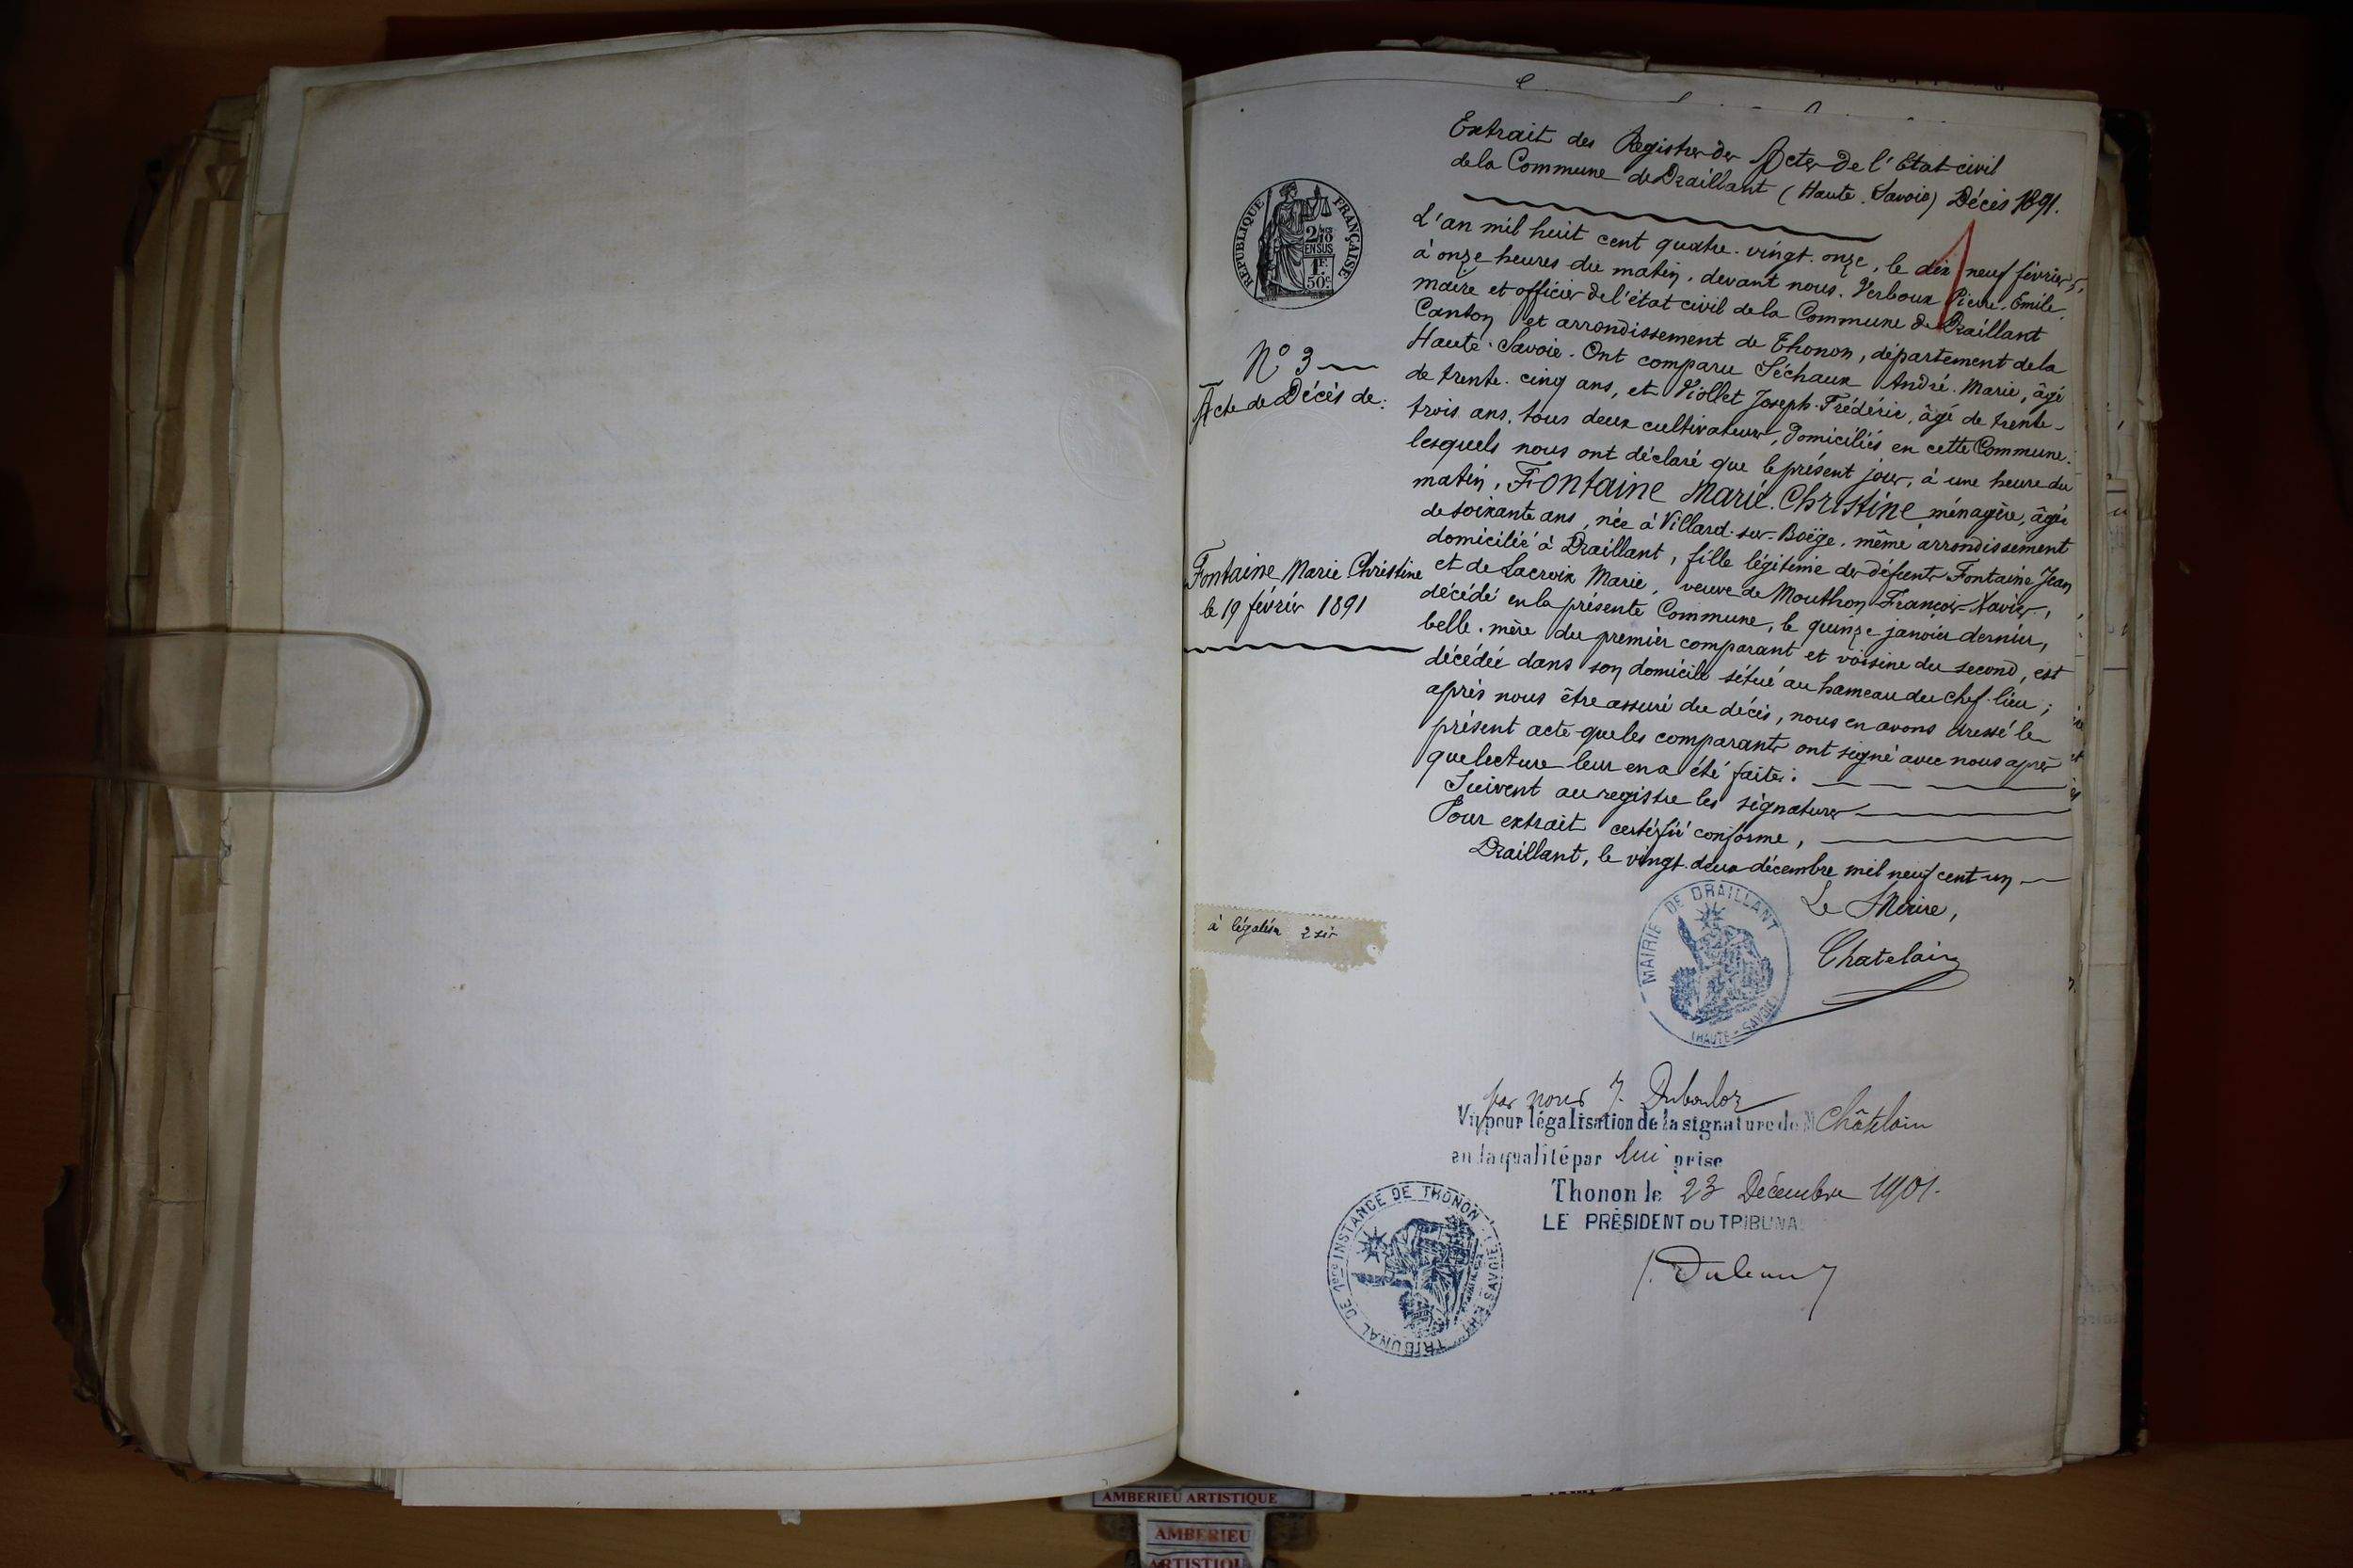 Extrait des Registres des Actes de l'Etat civil
de la Commune de Draillant (Haute-Savoie) Décès 1891.
REPUBLIQUE FRANÇAISE
2/10
EN SUS
1F.
50c.
L'an mil huit cent quatre-vingt-onze, le dix neuf février,
à onze heures du matin, devant nous, Verboux Pierre-Emile,
maire et officier de l'état civil de la Commune de Draillant
Canton et arrondissement de Thonon, département de la
Haute-Savoie. Ont comparu Séchaux André-Marie, âgé
de trente-cinq ans, et Viollet Joseph-Frédéric, âgé de trente-
trois ans, tous deux cultivateurs, domiciliés en cette Commune:
lesquels nous ont déclaré que le présent jour, à une heure du
matin, Fontaine Marie-Christine, ménagère, âgée
de soixante ans, née à Villard-sur-Boëge, même arrondissement
domiciliée à Draillant, fille légitime des défunts Fontaine Jean
et de Lacroix Marie, veuve de Mouthon François-Xavier,
décédé en la présente Commune, le quinze janvier dernier,
belle-mère du premier comparant et voisine du second, est
décédée dans son domicile situé au hameau du Chef-lieu;
après nous être assuré du décès, nous en avons dressé le
présent acte que les comparants ont signé avec nous après
que lecture leur en a été faite:
Suivent au registre les signatures
Pour extrait certifié conforme,
Draillant, le vingt-deux décembre mil neuf cent un
Le Maire,
Chatelain
MAIRIE DE DRAILLANT
(HAUTE-SAVOIE)
N° 3
Acte de Décès de:
Fontaine Marie Christine
le 19 février 1891
à légalisr
par nous J. Dubouloz
Vu pour légalisation de la signature de M Châtelain
en la qualité par lui prise
Thonon le 23 Décembre 1901.
LE PRÉSIDENT DU TRIBUNAL
TRIBUNAL DE 1ère INSTANCE DE THONON (Hte SAVOIE)
AMBERIEU ARTISTIQUE
AMBERIEU
ARTISTIQUE